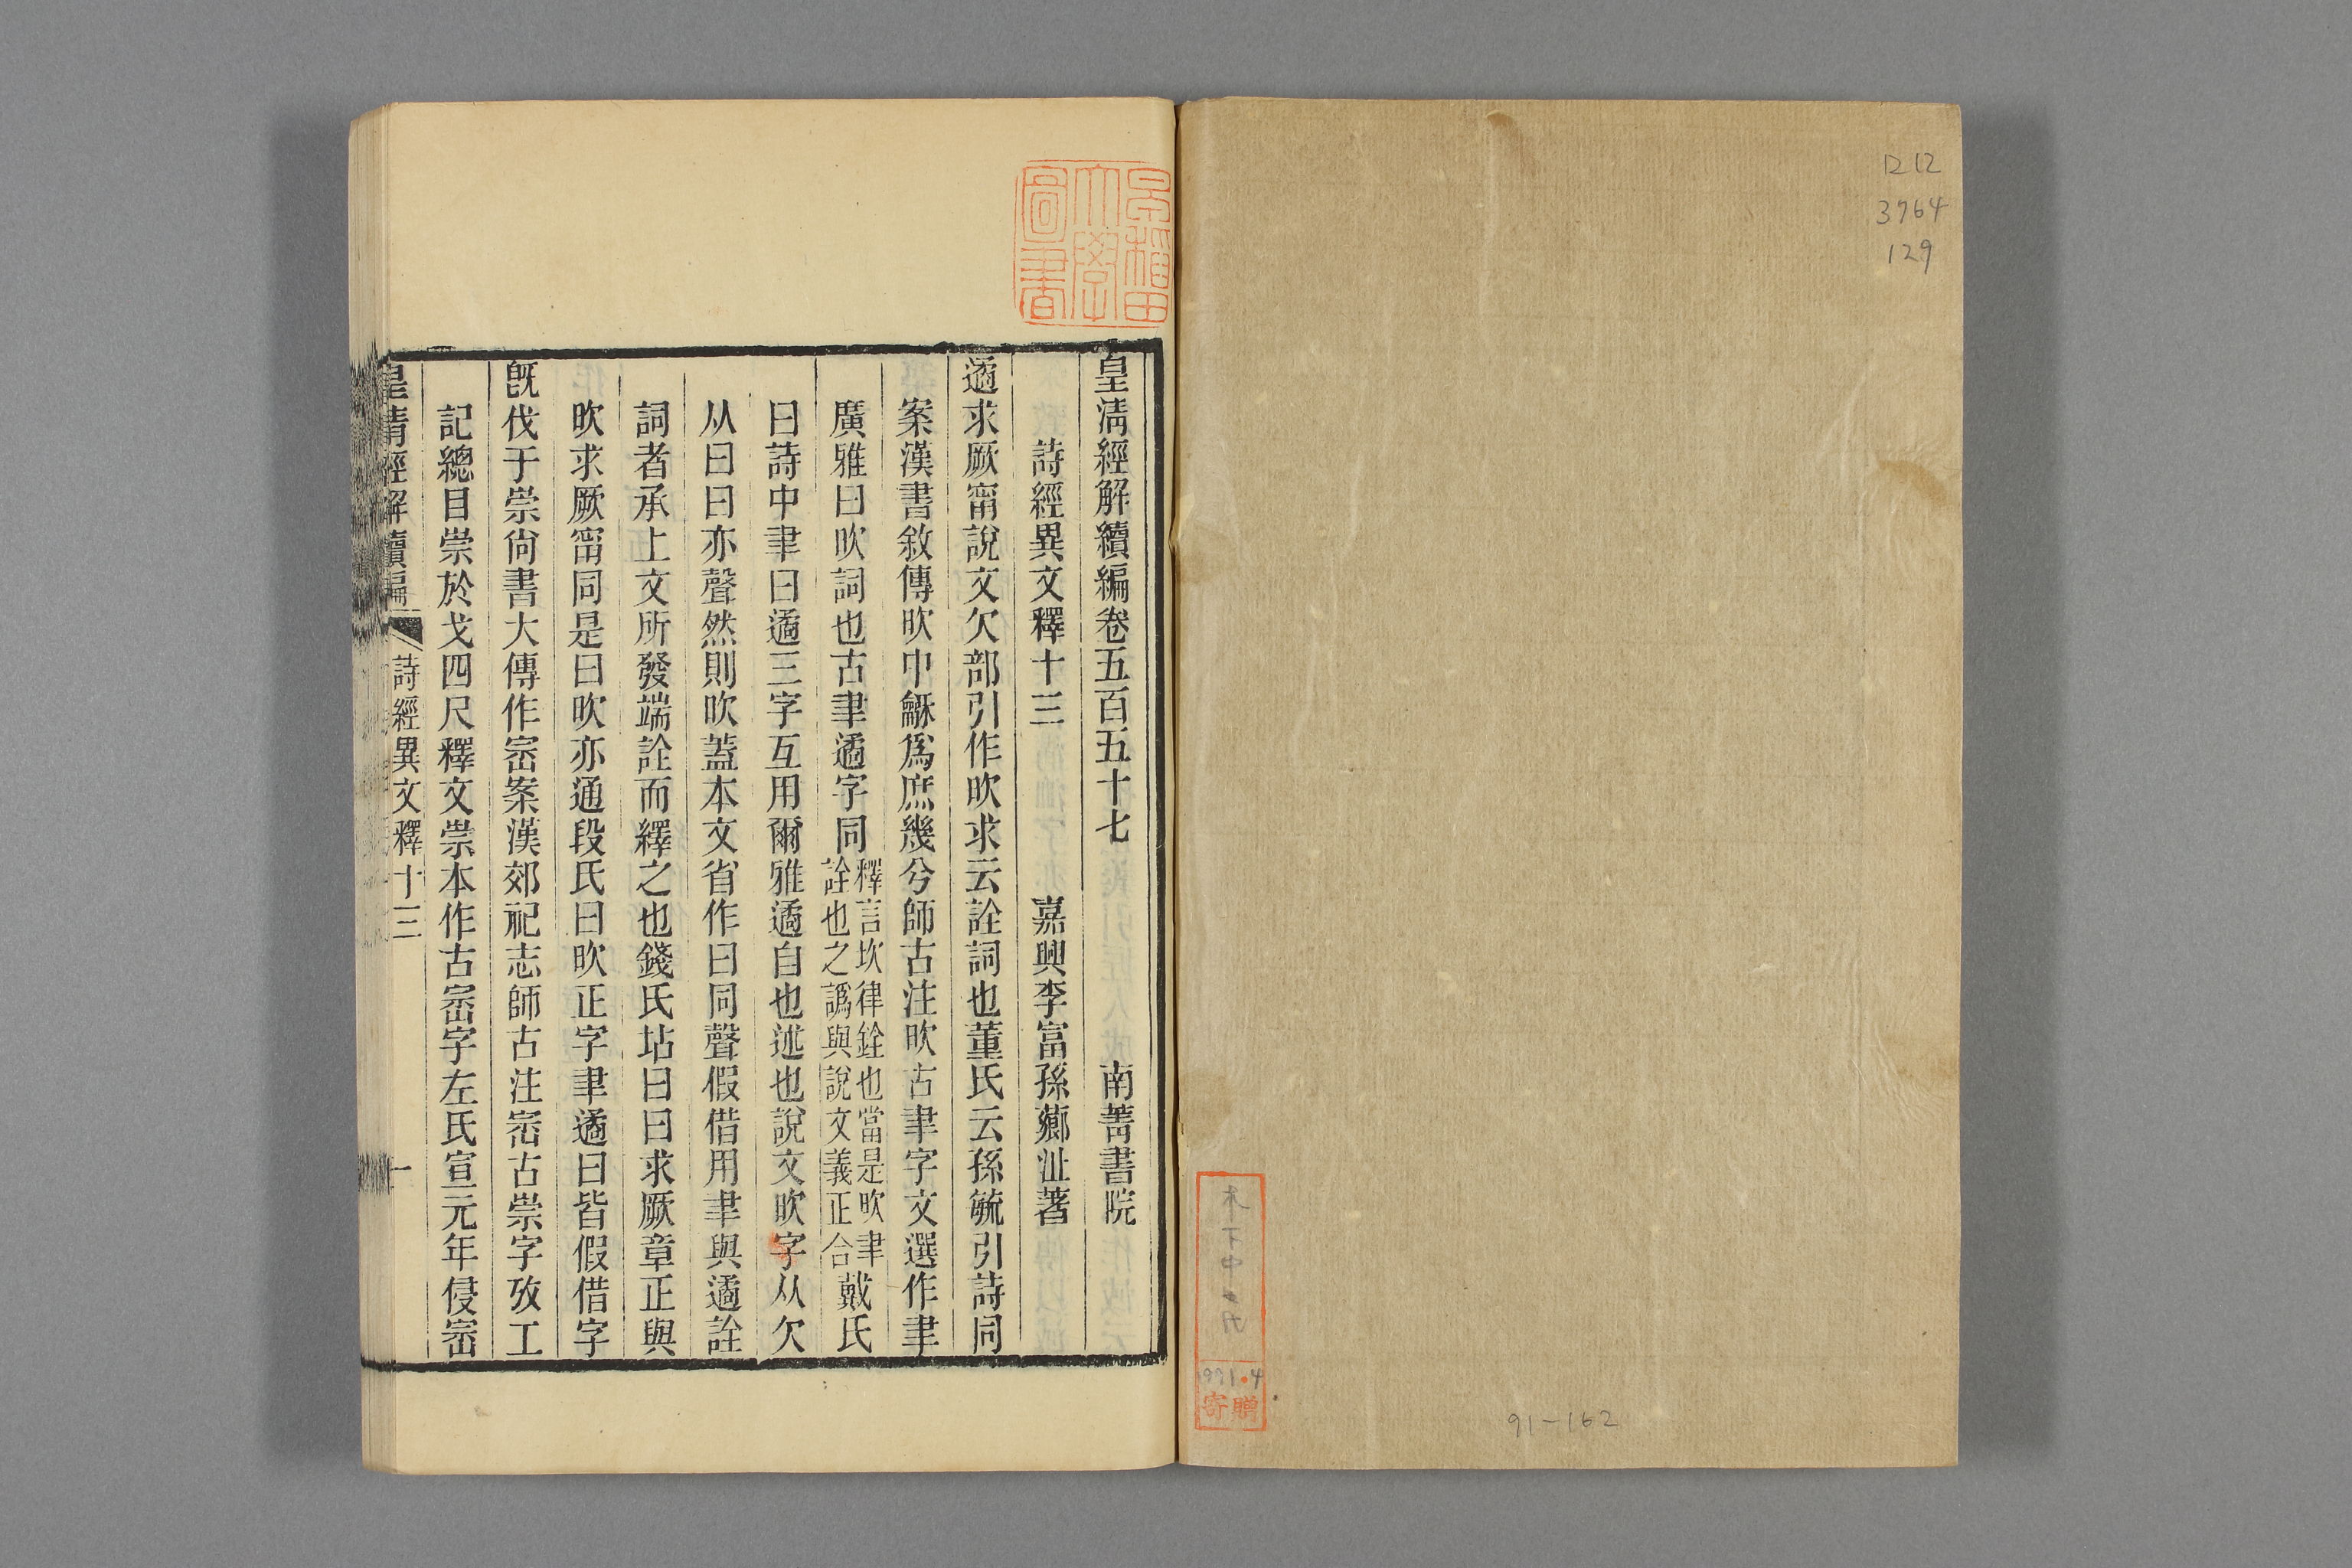 1212
3764
129
91-162
1991.4
寄贈
早稻田大學圖書
皇清經解續編卷五百五十七 南菁書院
詩經異文釋十三 嘉興李富孫薌沚著
遹求厥甯說文欠部引作欥求云詮詞也董氏云孫毓引詩同
案漢書敘傳欥中龢爲庶幾兮師古注欥古聿字文選作聿
廣雅曰欥詞也古聿遹字同釋言坎律銓也當是欥聿詮也之譌與說文義正合戴氏
曰詩中聿曰遹三字互用爾雅遹自也述也說文欥字从欠
从曰曰亦聲然則欥蓋本文省作曰同聲假借用聿與遹詮
詞者承上文所發端詮而繹之也錢氏坫曰曰求厥章正與
欥求厥甯同是曰欥亦通段氏曰欥正字聿遹曰皆假借字
旣伐于崇尙書大傳作崈案漢郊祀志師古注崈古崇字攷工
記總目崇於戈四尺釋文崇本作古崈字左氏宣元年侵崈
皇清經解續編 詩經異文釋十三 一